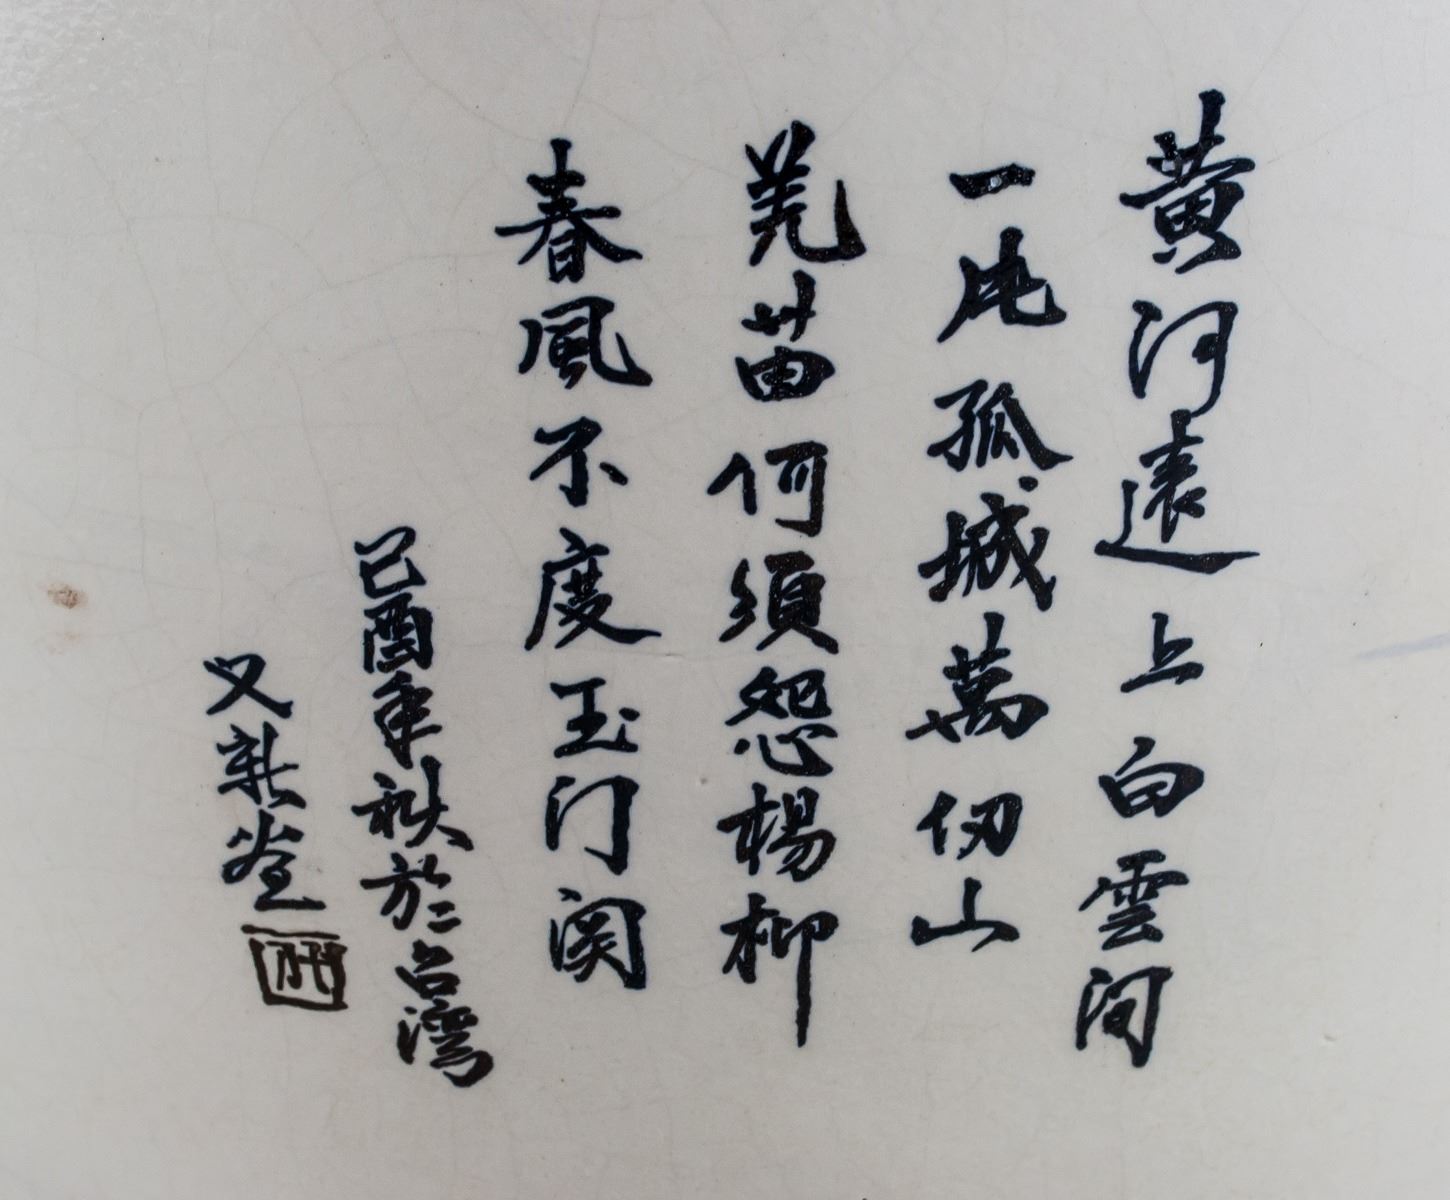 黄河遠上白雲间
一片孤城萬仞山
羌苗何須怨楊柳
春風不度玉门関
己酉年秋於台灣
又新